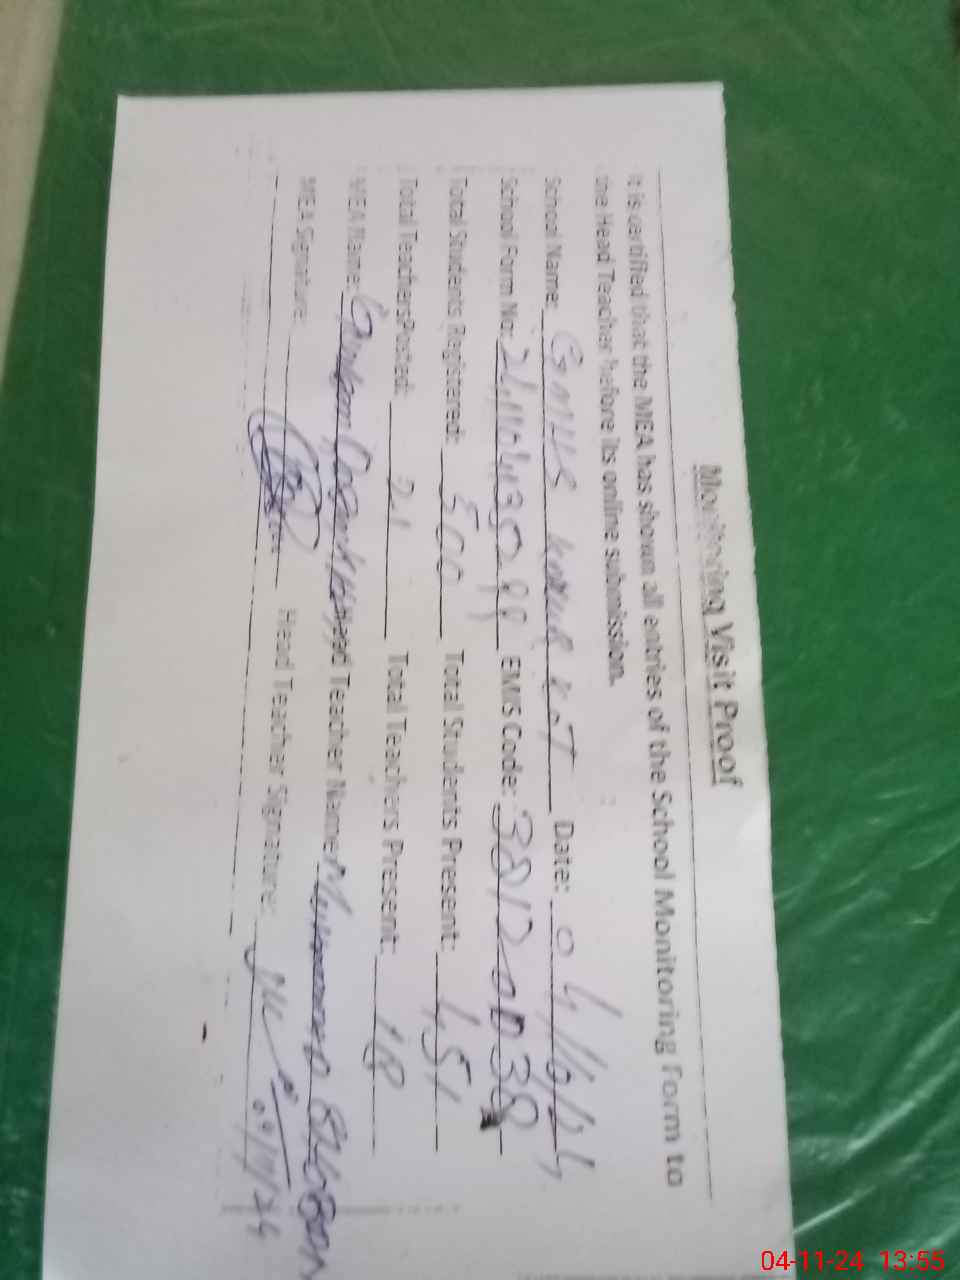 Monitoring Visit Proof
It is certified that the MEA has shown all entries of the School Monitoring Form to
the Head Teacher before its online submission.
School Name: GMHS KOT Date: 04/11/24
School Form No: EMIS Code: 38120038
Total Students Registered: 500 Total Students Present: 451
Total Teachers Posted: 21 Total Teachers Present: 18
MEA Name: Head Teacher Name: Muhammad
MEA Signature: Head Teacher Signature:
04/11/24
04-11-24 13:55